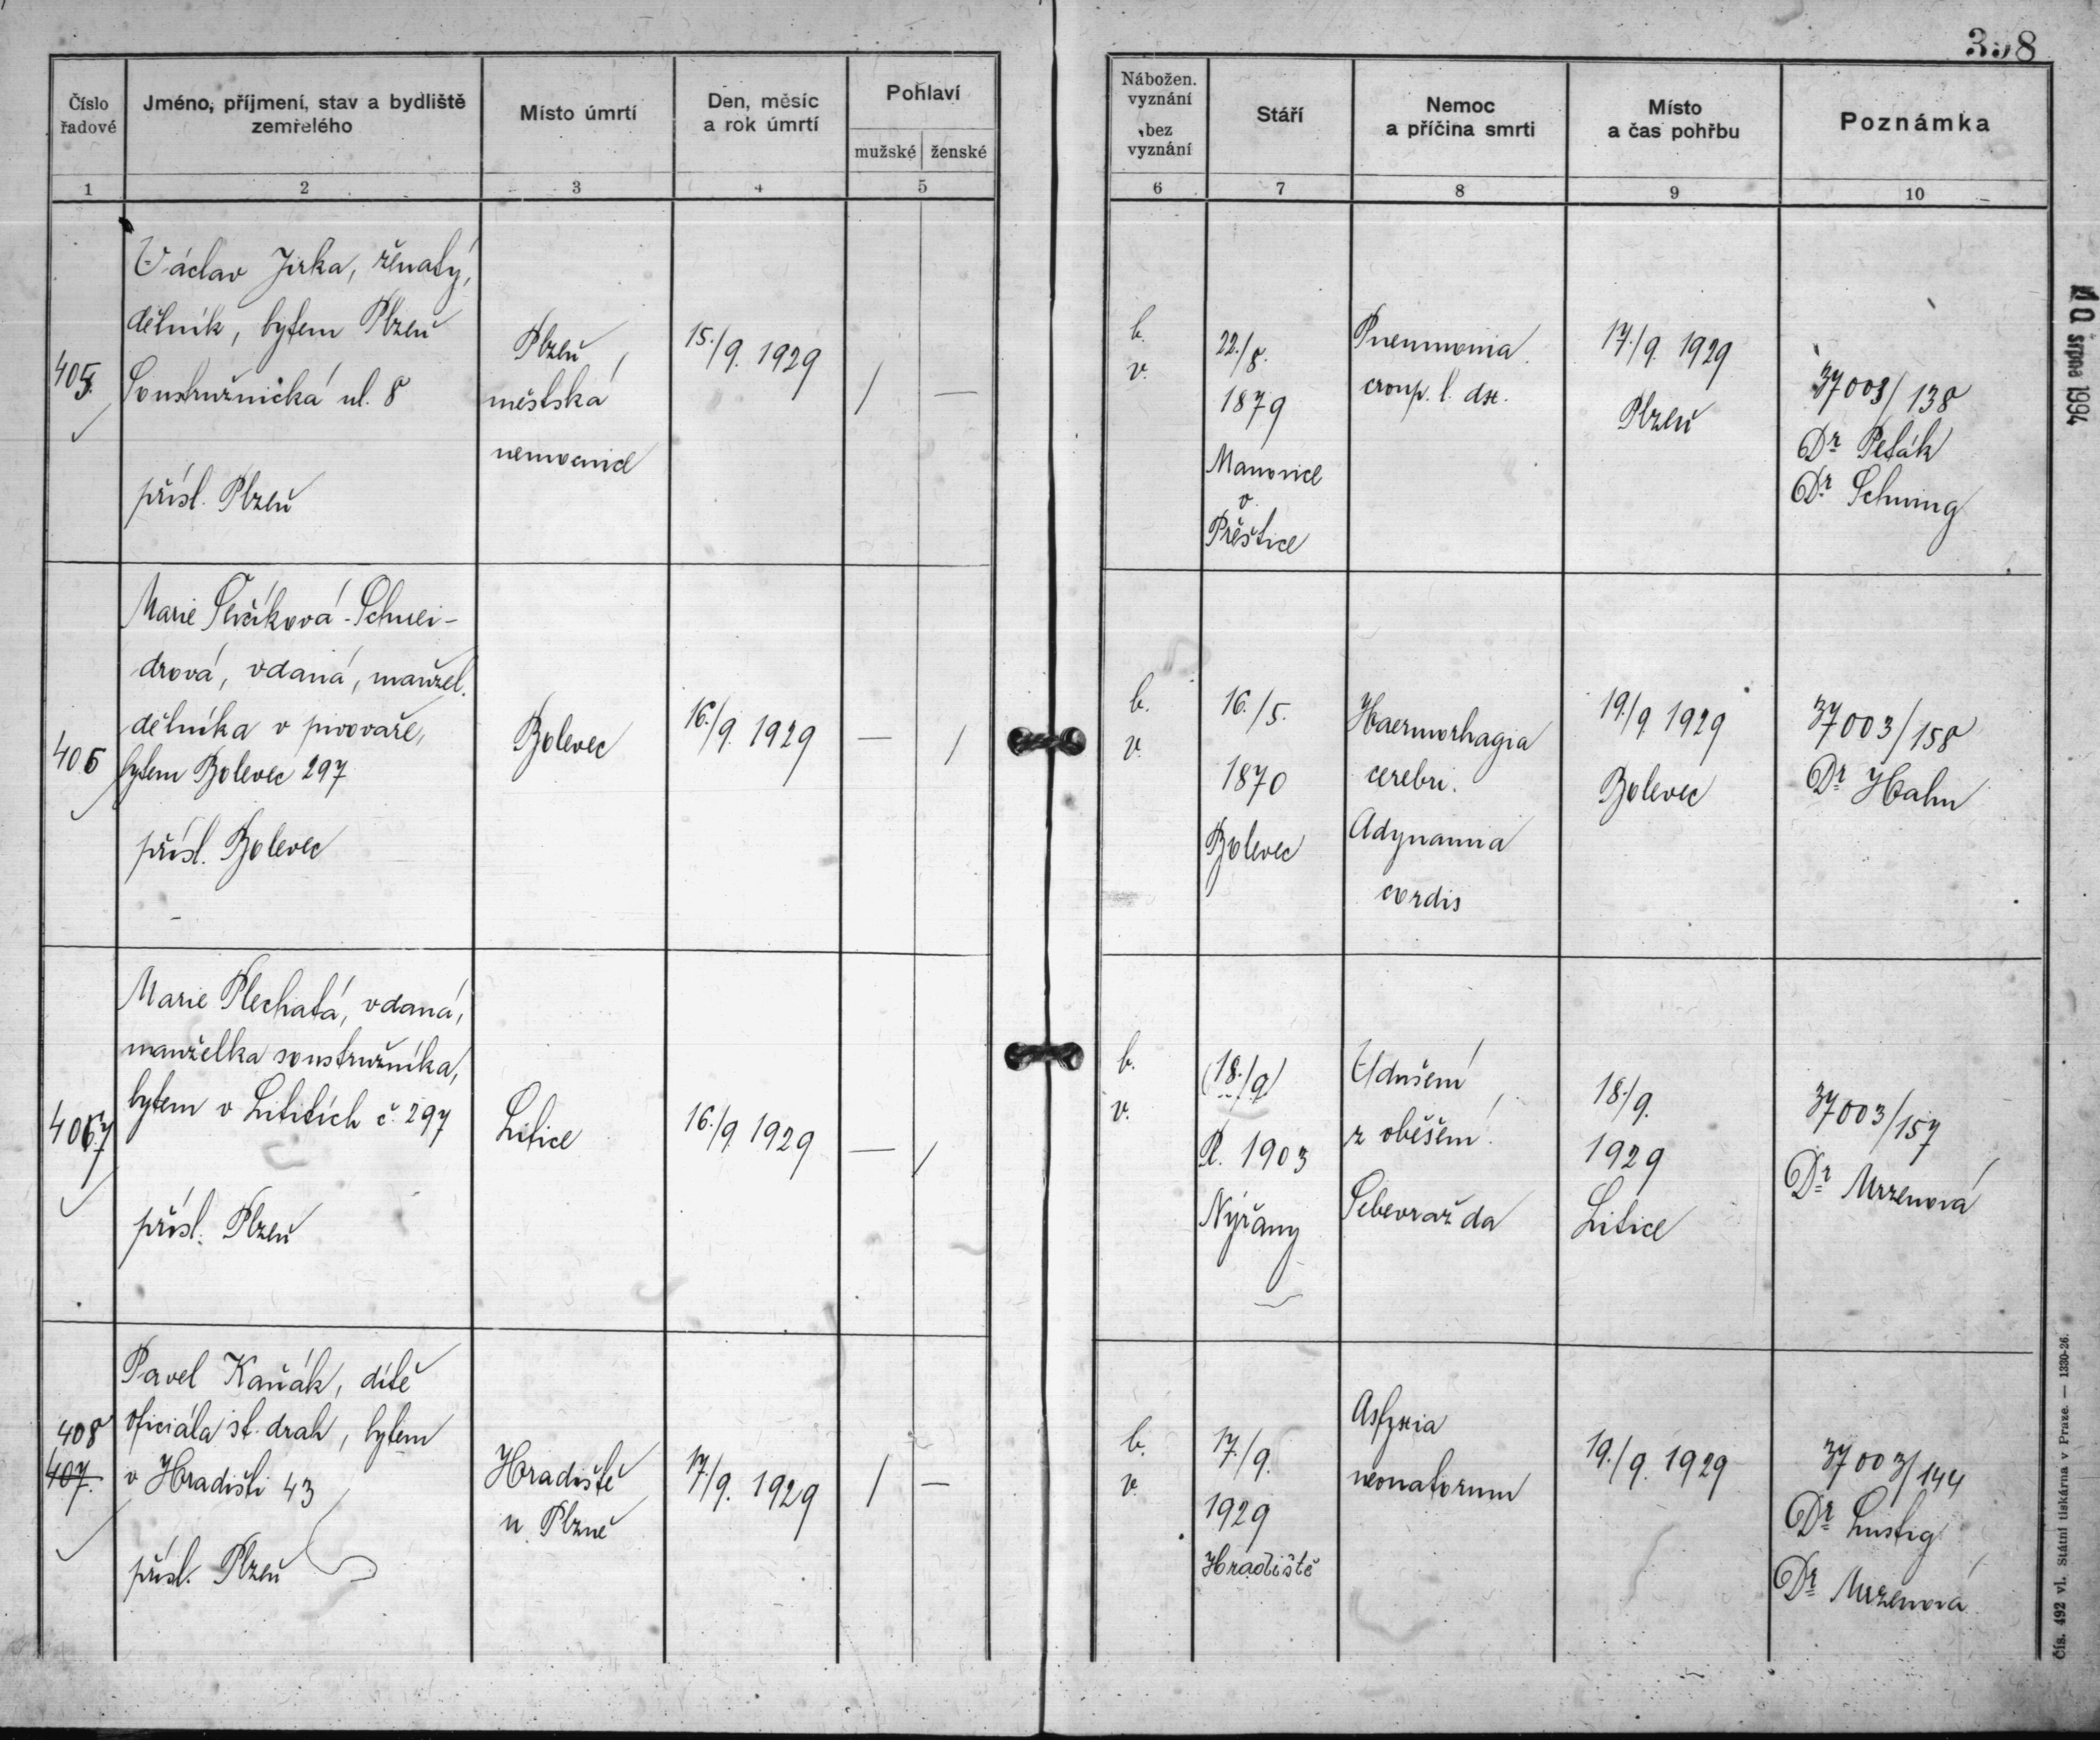 358
Číslo řadové
Jméno, příjmení, stav a bydliště zemřelého
Místo úmrtí
Den, měsíc a rok úmrtí
Pohlaví
mužské
ženské
Nábožen. vyznání
bez vyznání
Stáří
Nemoc a příčina smrti
Místo a čas pohřbu
Poznámka
1
2
3
4
5
6
7
8
9
10
405.
Václav Jirka, ženatý,
dělník, bytem Plzeň
Soustružnická ul. 8
přísl. Plzeň
Plzeň,
městská
nemocnice
15./9. 1929
/
—
b.
v.
22./8.
1879
Manovice
o
Přeštice
Pneumonia
croup. l. dx.
17./9. 1929
Plzeň
37003/138
Dr Peták
Dr Schwing
406
Marie Slívíková-Schnei-
drová, vdaná, manžel.
dělníka v pivovaře,
bytem Bolevec 297
přísl. Bolevec
Bolevec
16./9. 1929
—
/
b.
v.
16./5.
1870
Bolevec
Haemorhagia
cerebri.
Adynamia
cordis
19./9. 1929
Bolevec
37003/158
Dr Hahn
407
Marie Plechatá, vdaná,
manželka soustružníka,
bytem v Liticích č. 297
přísl. Plzeň
Litice
16./9. 1929
—
/
b.
v.
(18./9)
R. 1903
Nýřany
Udušení
z oběšení.
Sebevražda
18./9.
1929
Litice
37003/157
Dr Mrzenová
408
407.
Pavel Kaňák, dítě
oficiála st. drah, bytem
v Hradišti 43
přísl. Plzeň
Hradiště
u Plzně
17./9. 1929
/
—
b.
v.
17./9.
1929
Hradiště
Asfyxia
neonatorum
19./9. 1929
37003/144
Dr Lustig
Dr Mrzenová
srpna 1994
Čís. 492 vl. Státní tiskárna v Praze. — 1330-26.